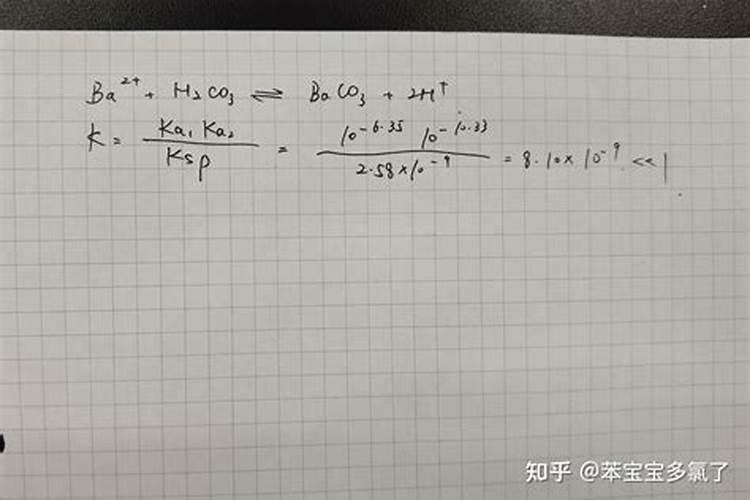 Ba²⁺ + H₂CO₃ ⇌ BaCO₃ + 2H⁺
K = Ka₁ Ka₂ / Ksp = 10⁻⁶·³⁵ 10⁻¹⁰·³³ / 2.58×10⁻⁹ = 8.10×10⁻⁹ << 1
知乎 @笨宝宝多氯了